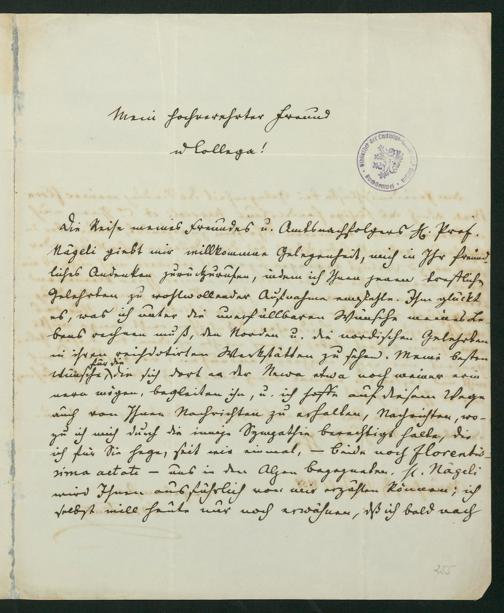 Mein hochverehrter Freund
u Collega!
Die Reise meines Freundes u. Amtsnachfolgers H. Prof.
Nägeli giebt mir willkommne Gelegenheit, mich in Ihr freund
liches Andenken zurückzurufen, indem ich Ihnen jenen trefflichen
Gelehrten zu wohlwollender Aufnahme empfehle. Ihm glückt
es, was ich unter die unerfüllbaren Wünsche meines Le
bens rechnen muß, den Norden u. die nordischen Gelehrten
in ihren reichdotirten Werkstätten zu sehen. Meine besten
Wünsche für die, die sich dort an der Newa etwa noch meiner erin
nern mögen, begleiten ihn, u. ich hoffe auf diesem Wege
auch von Ihnen Nachrichten zu erhalten, Nachrichten, wo-
zu ich mich durch die innige Sympathie berechtigt halte, die
ich für Sie hege, seit wir einmal, – beide noch florentis-
sima aetate – uns in den Alpen begegneten. H. Nägeli
wird Ihnen ausführlich von mir erzählen können; ich
selbst will heute nur noch erwähnen, dß ich bald nach
255